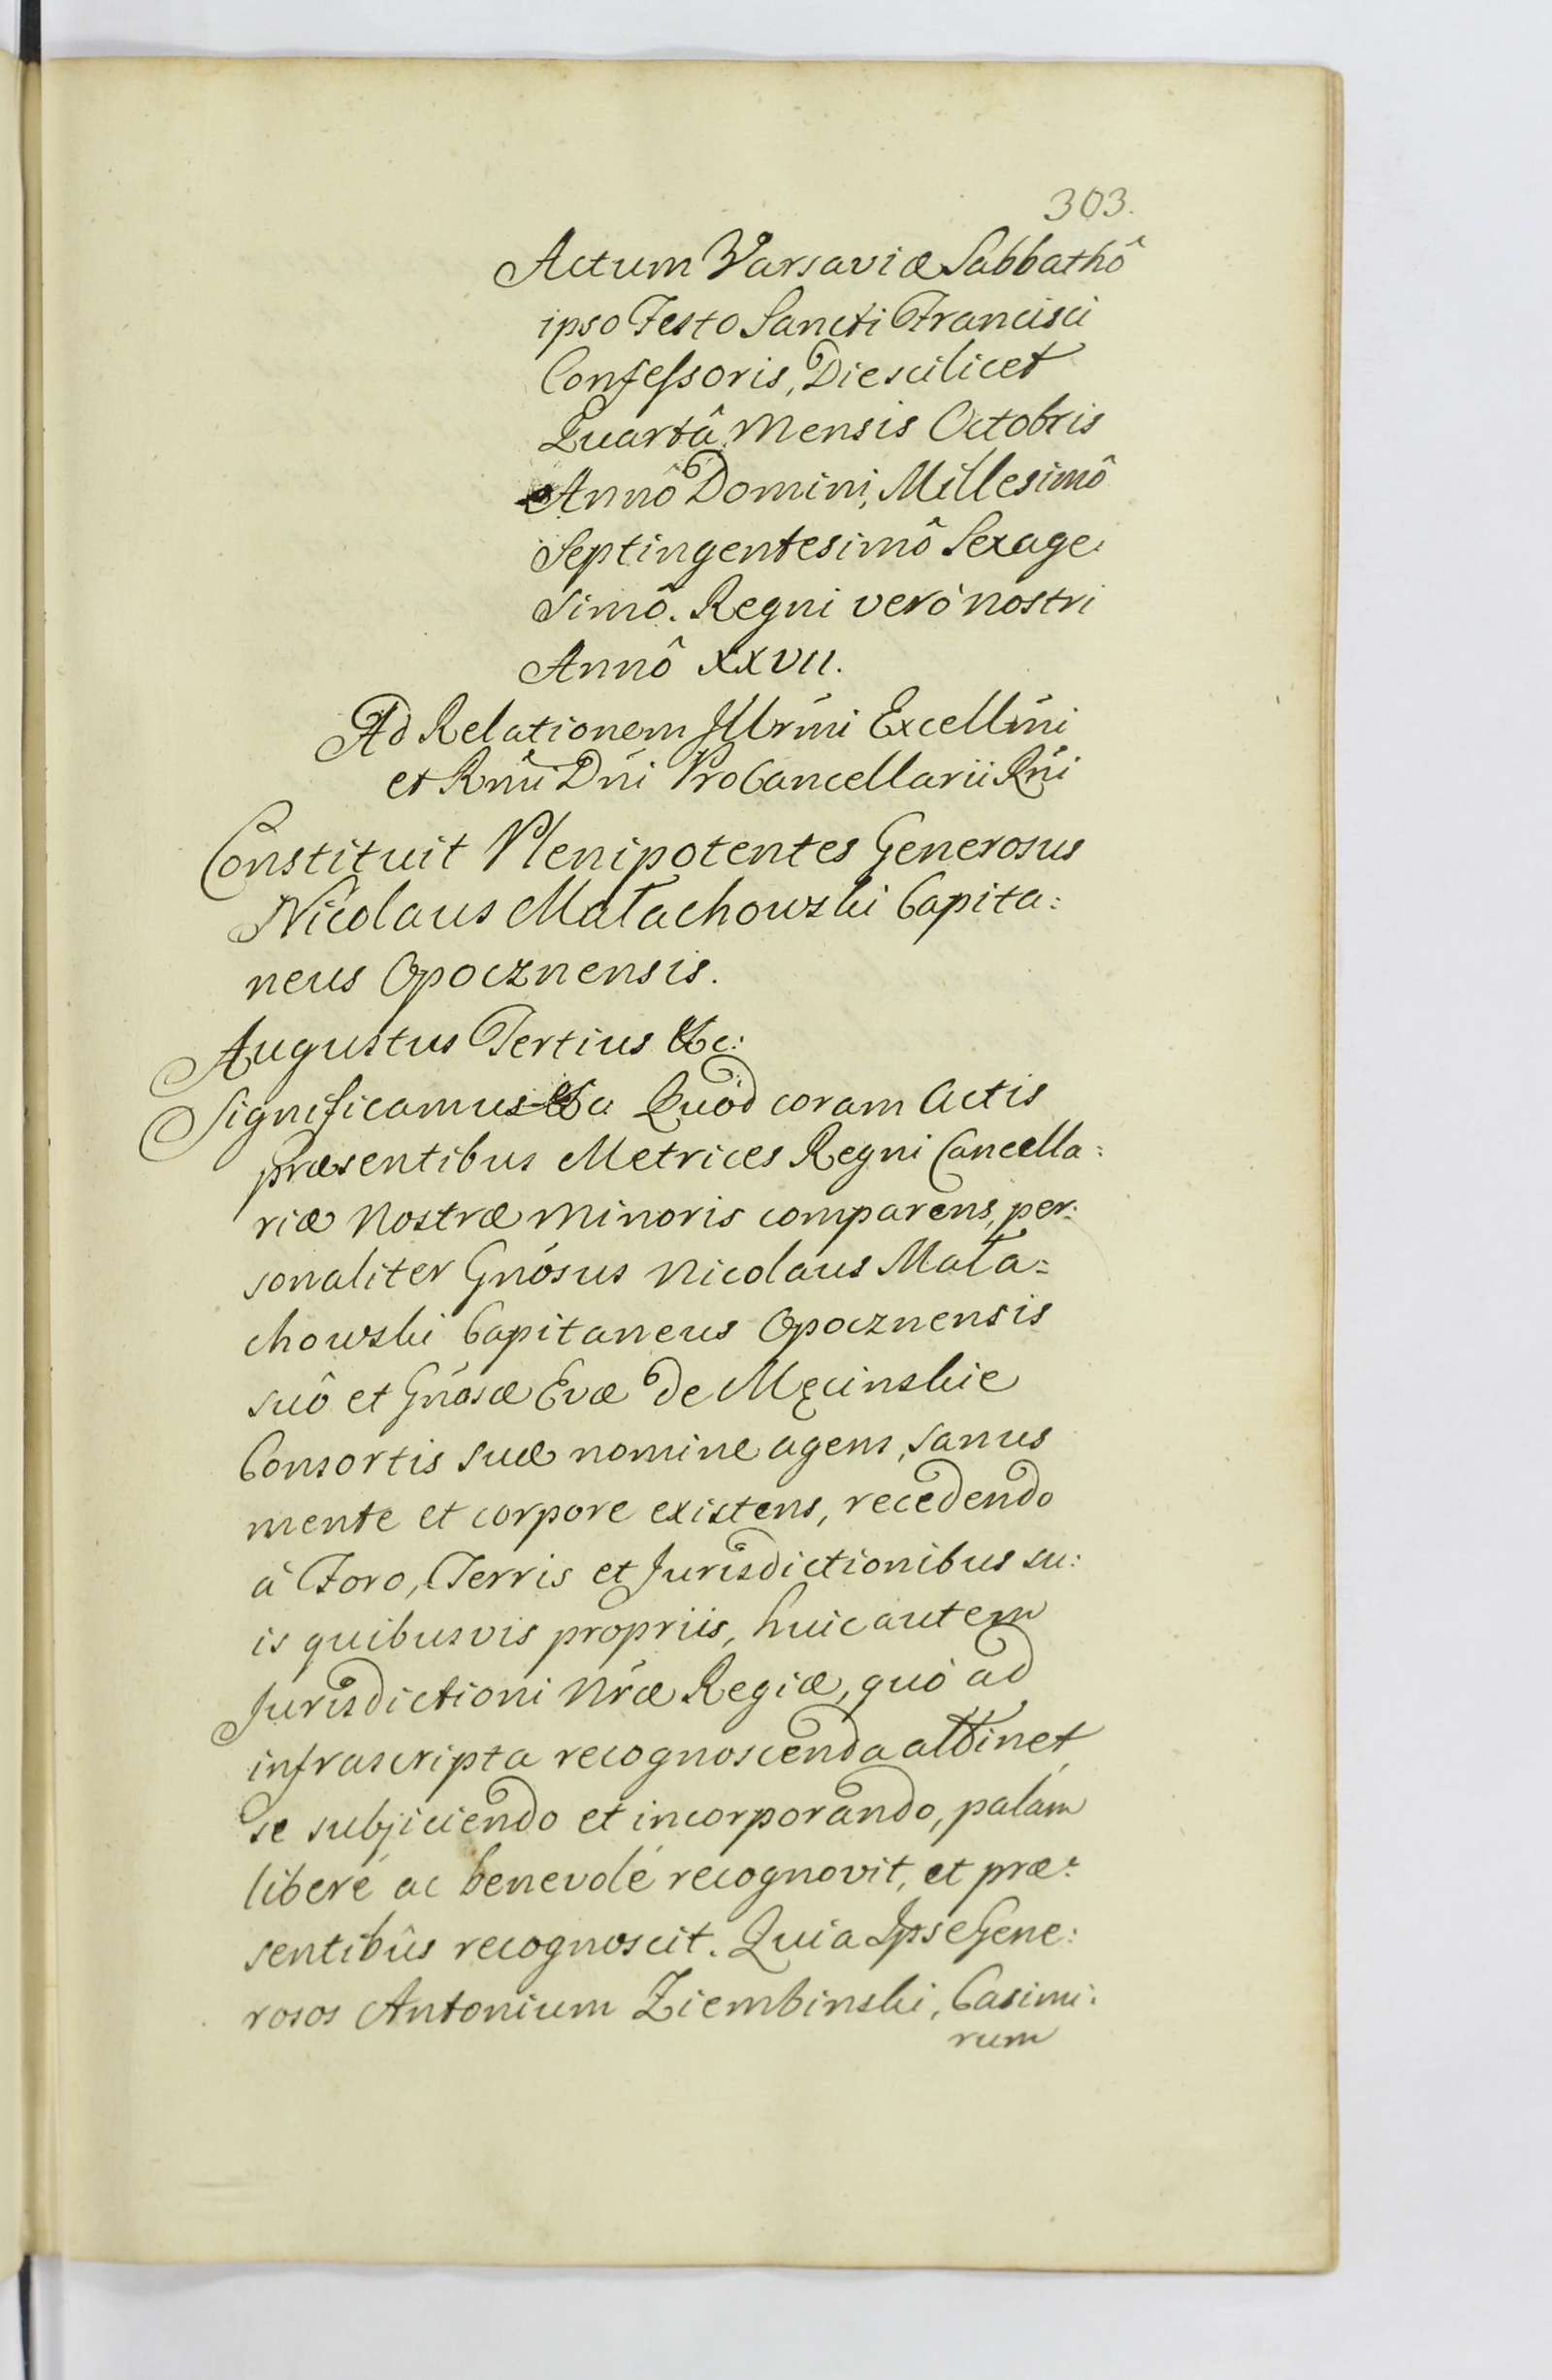 303.
Actum Varsaviæ Sabbathô
ipso Festo Sancti Francisci
Confessoris, Die scilicet
Quartâ Mensis Octobris
Annô Domini, Millesimô
Septingentesimô Sexage:
simô. Regni verò nostri
Annô XXVII.
Ad Relationem Illrmi Excellmi
et Rmi Dni ProCancellarii Rni
Constituit Plenipotentes Generosus
Nicolaus Małachowski Capita:
neus Opocznensis.
Augustus Tertius &c:
Significamus &c Quod coram Actis
præsentibus Metrices Regni Cancella:
riæ Nostræ Minoris comparens, per:
sonaliter Gnosus Nicolaus Mała:
chowski Capitaneus Opocznensis
suô et Gnosæ Evæ de Męcinskie
Consortis suæ nomine agens, sanus
mente et corpore existens, recedendo
à Foro, Terris et Jurisdictionibus su:
is quibusvis propriis, huic autem
Jurisdictioni Nræ Regiæ, quò ad
infrascripta recognoscenda attinet,
se subjiciendo et incorporando, palám
liberé ac benevolé recognovit, et præ:
sentibûs recognoscit. Quia Ipse Gene:
rosos Antonium Ziembinski, Casimi:
rum